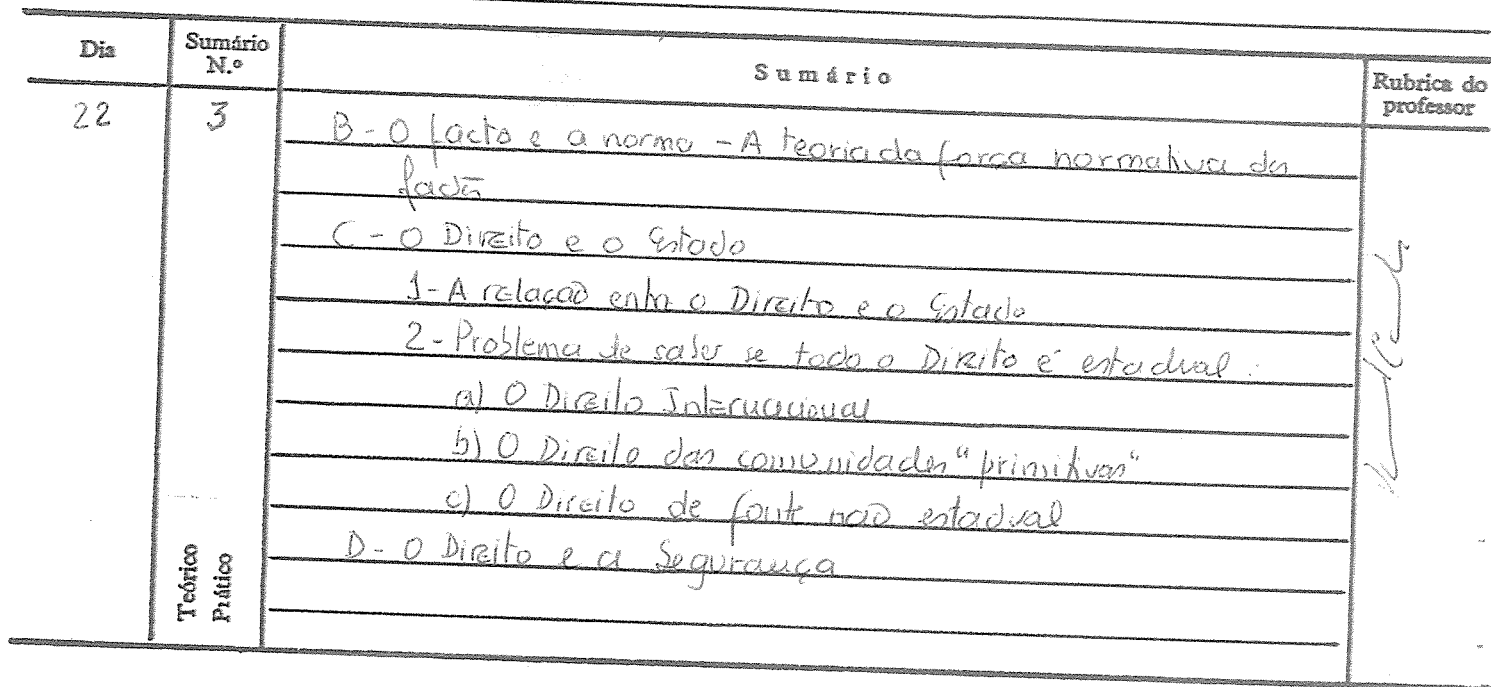 Dia Sumário N.º Sumário Rubrica do professor
22 3 B - O facto e a norma - A teoria da força normativa dos
factos
C - O Direito e o Estado
1 - A relação entre o Direito e o Estado
2 - Problema de saber se todo o Direito é estadual:
a) O Direito Internacional
b) O Direito das comunidades "primitivas"
c) O Direito de fonte não estadual
D - O Direito e a Segurança
Teórico
Prático